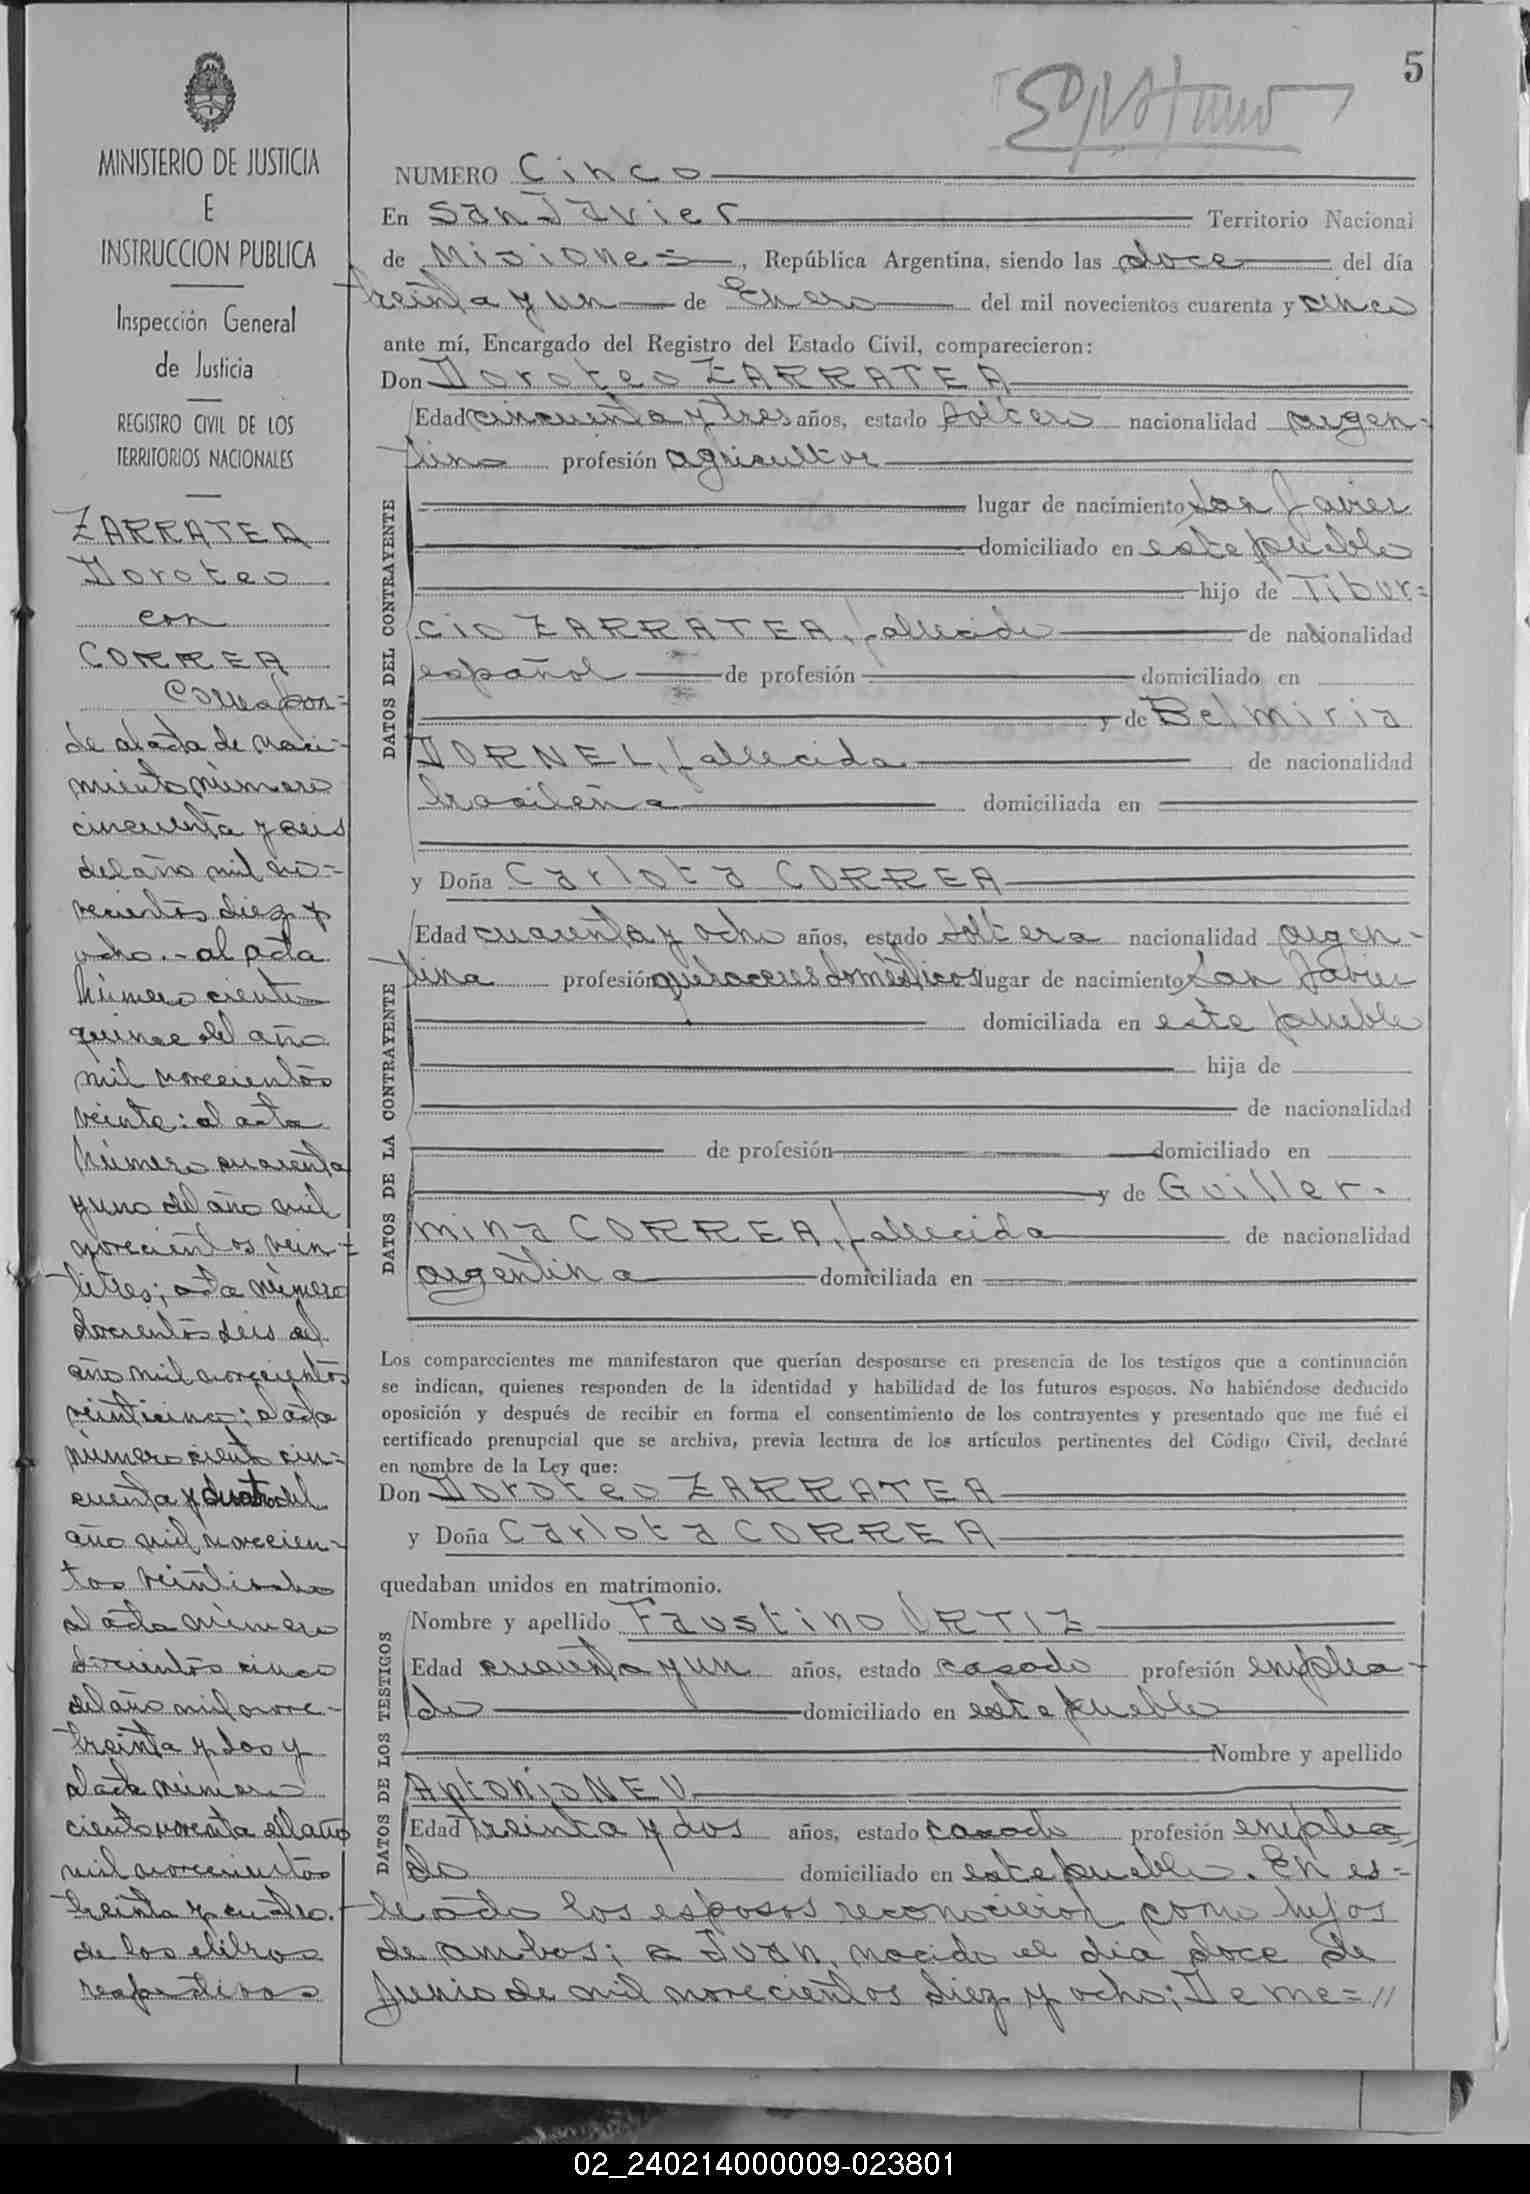 5
MINISTERIO DE JUSTICIA
E
INSTRUCCION PUBLICA
Inspección General
de Justicia
REGISTRO CIVIL DE LOS
TERRITORIOS NACIONALES
ZARRATEA
Doroteo
con
CORREA
Correspon=
de al acta de naci-
miento número
cincuenta y seis
del año mil no-
vecientos diez y
ocho.- al acta
número ciento
quince del año
mil novecientos
veinte: al acta
número cuarenta
y uno del año mil
novecientos vein=
titres; acta número
doscientos seis del
año mil novecientos
veinticinco; al acta
número ciento cin=
cuenta y cuatro del
año mil novecien-
tos veintiocho
al acta número
doscientos cinco
del año mil nove-
treinta y dos y
al acta número
ciento noventa del año
mil novecientos
treinta y cuatro.
de los libros
respectivos
NUMERO Cinco
En San Javier Territorio Nacional
de Misiones, República Argentina, siendo las doce del día
treinta y un de Enero del mil novecientos cuarenta y cinco
ante mí, Encargado del Registro del Estado Civil, comparecieron:
Don Doroteo ZARRATEA
DATOS DEL CONTRAYENTE
Edad cincuenta y tres años, estado soltero nacionalidad argen-
tino profesión agricultor
lugar de nacimiento San Javier
domiciliado en este pueblo
hijo de Tibur=
cio ZARRATEA, fallecido de nacionalidad
español de profesión domiciliado en
y de Belmiria
DORNEL, fallecida de nacionalidad
brasileña domiciliada en
y Doña Carlota CORREA
DATOS DE LA CONTRAYENTE
Edad cuarenta y ocho años, estado soltera nacionalidad argen-
tina profesión quehaceres domésticos lugar de nacimiento San Javier
domiciliada en este pueblo
hija de
de nacionalidad
de profesión domiciliado en
y de Guiller-
mina CORREA, fallecida de nacionalidad
argentina domiciliada en
Los comparecientes me manifestaron que querían desposarse en presencia de los testigos que a continuación
se indican, quienes responden de la identidad y habilidad de los futuros esposos. No habiéndose deducido
oposición y después de recibir en forma el consentimiento de los contrayentes y presentado que me fué el
certificado prenupcial que se archiva, previa lectura de los artículos pertinentes del Código Civil, declaré
en nombre de la Ley que:
Don Doroteo ZARRATEA
y Doña Carlota CORREA
quedaban unidos en matrimonio.
DATOS DE LOS TESTIGOS
Nombre y apellido Faustino ORTIZ
Edad cuarenta y un años, estado casado profesión emplea-
do domiciliado en este pueblo
Nombre y apellido
Antonio NEU
Edad treinta y dos años, estado casado profesión emplea
do domiciliado en este pueblo. En es=
te acto los esposos reconocieron como hijos
de ambos; a Juan, nacido el día doce de
Junio de mil novecientos diez y ocho; De me=//
02_240214000009-023801